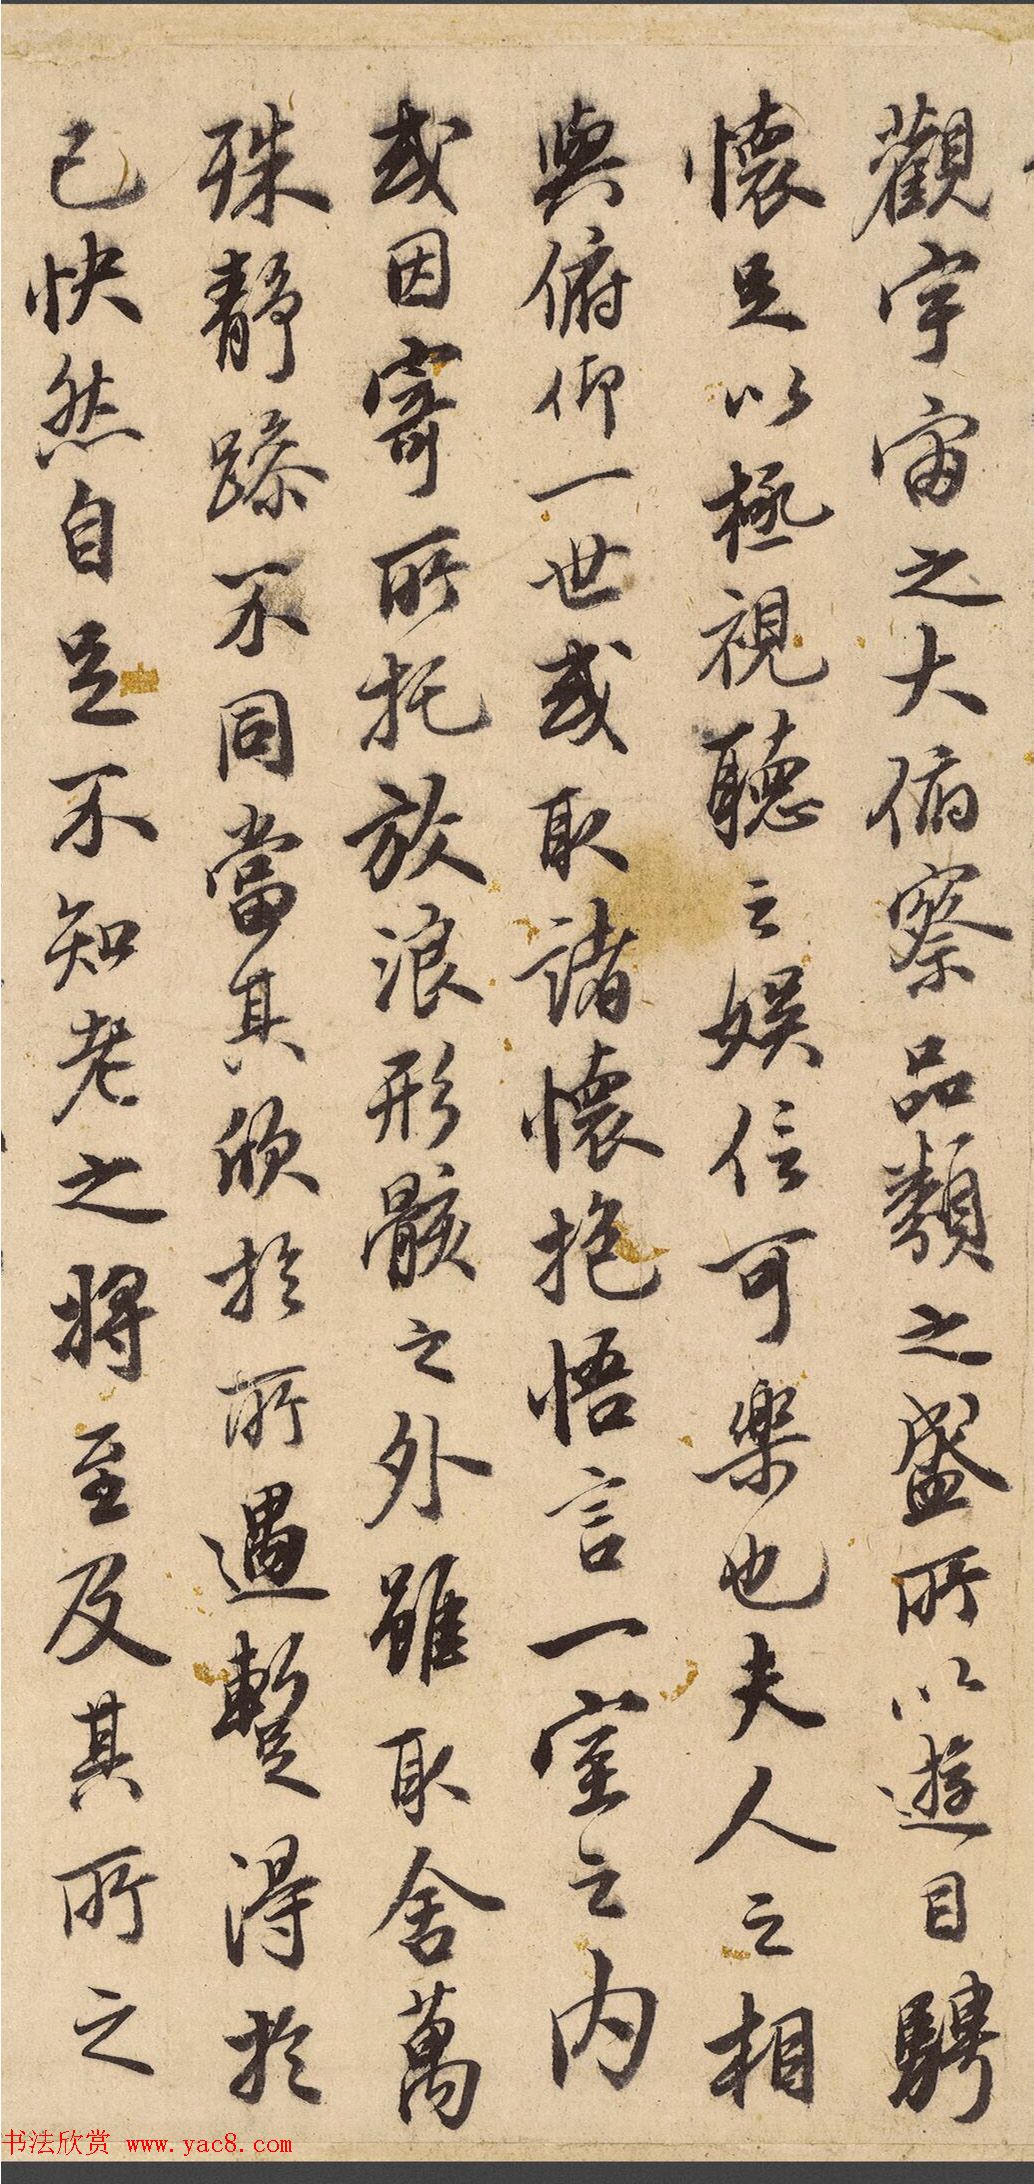 觀宇宙之大俯察品類之盛所以遊目騁
懷足以極視聽之娛信可樂也夫人之相
與俯仰一世或取諸懷抱悟言一室之內
或因寄所托放浪形骸之外雖取舍萬
殊靜躁不同當其欣於所遇暫得於
己快然自足不知老之將至及其所之
书法欣赏 www.yac8.com